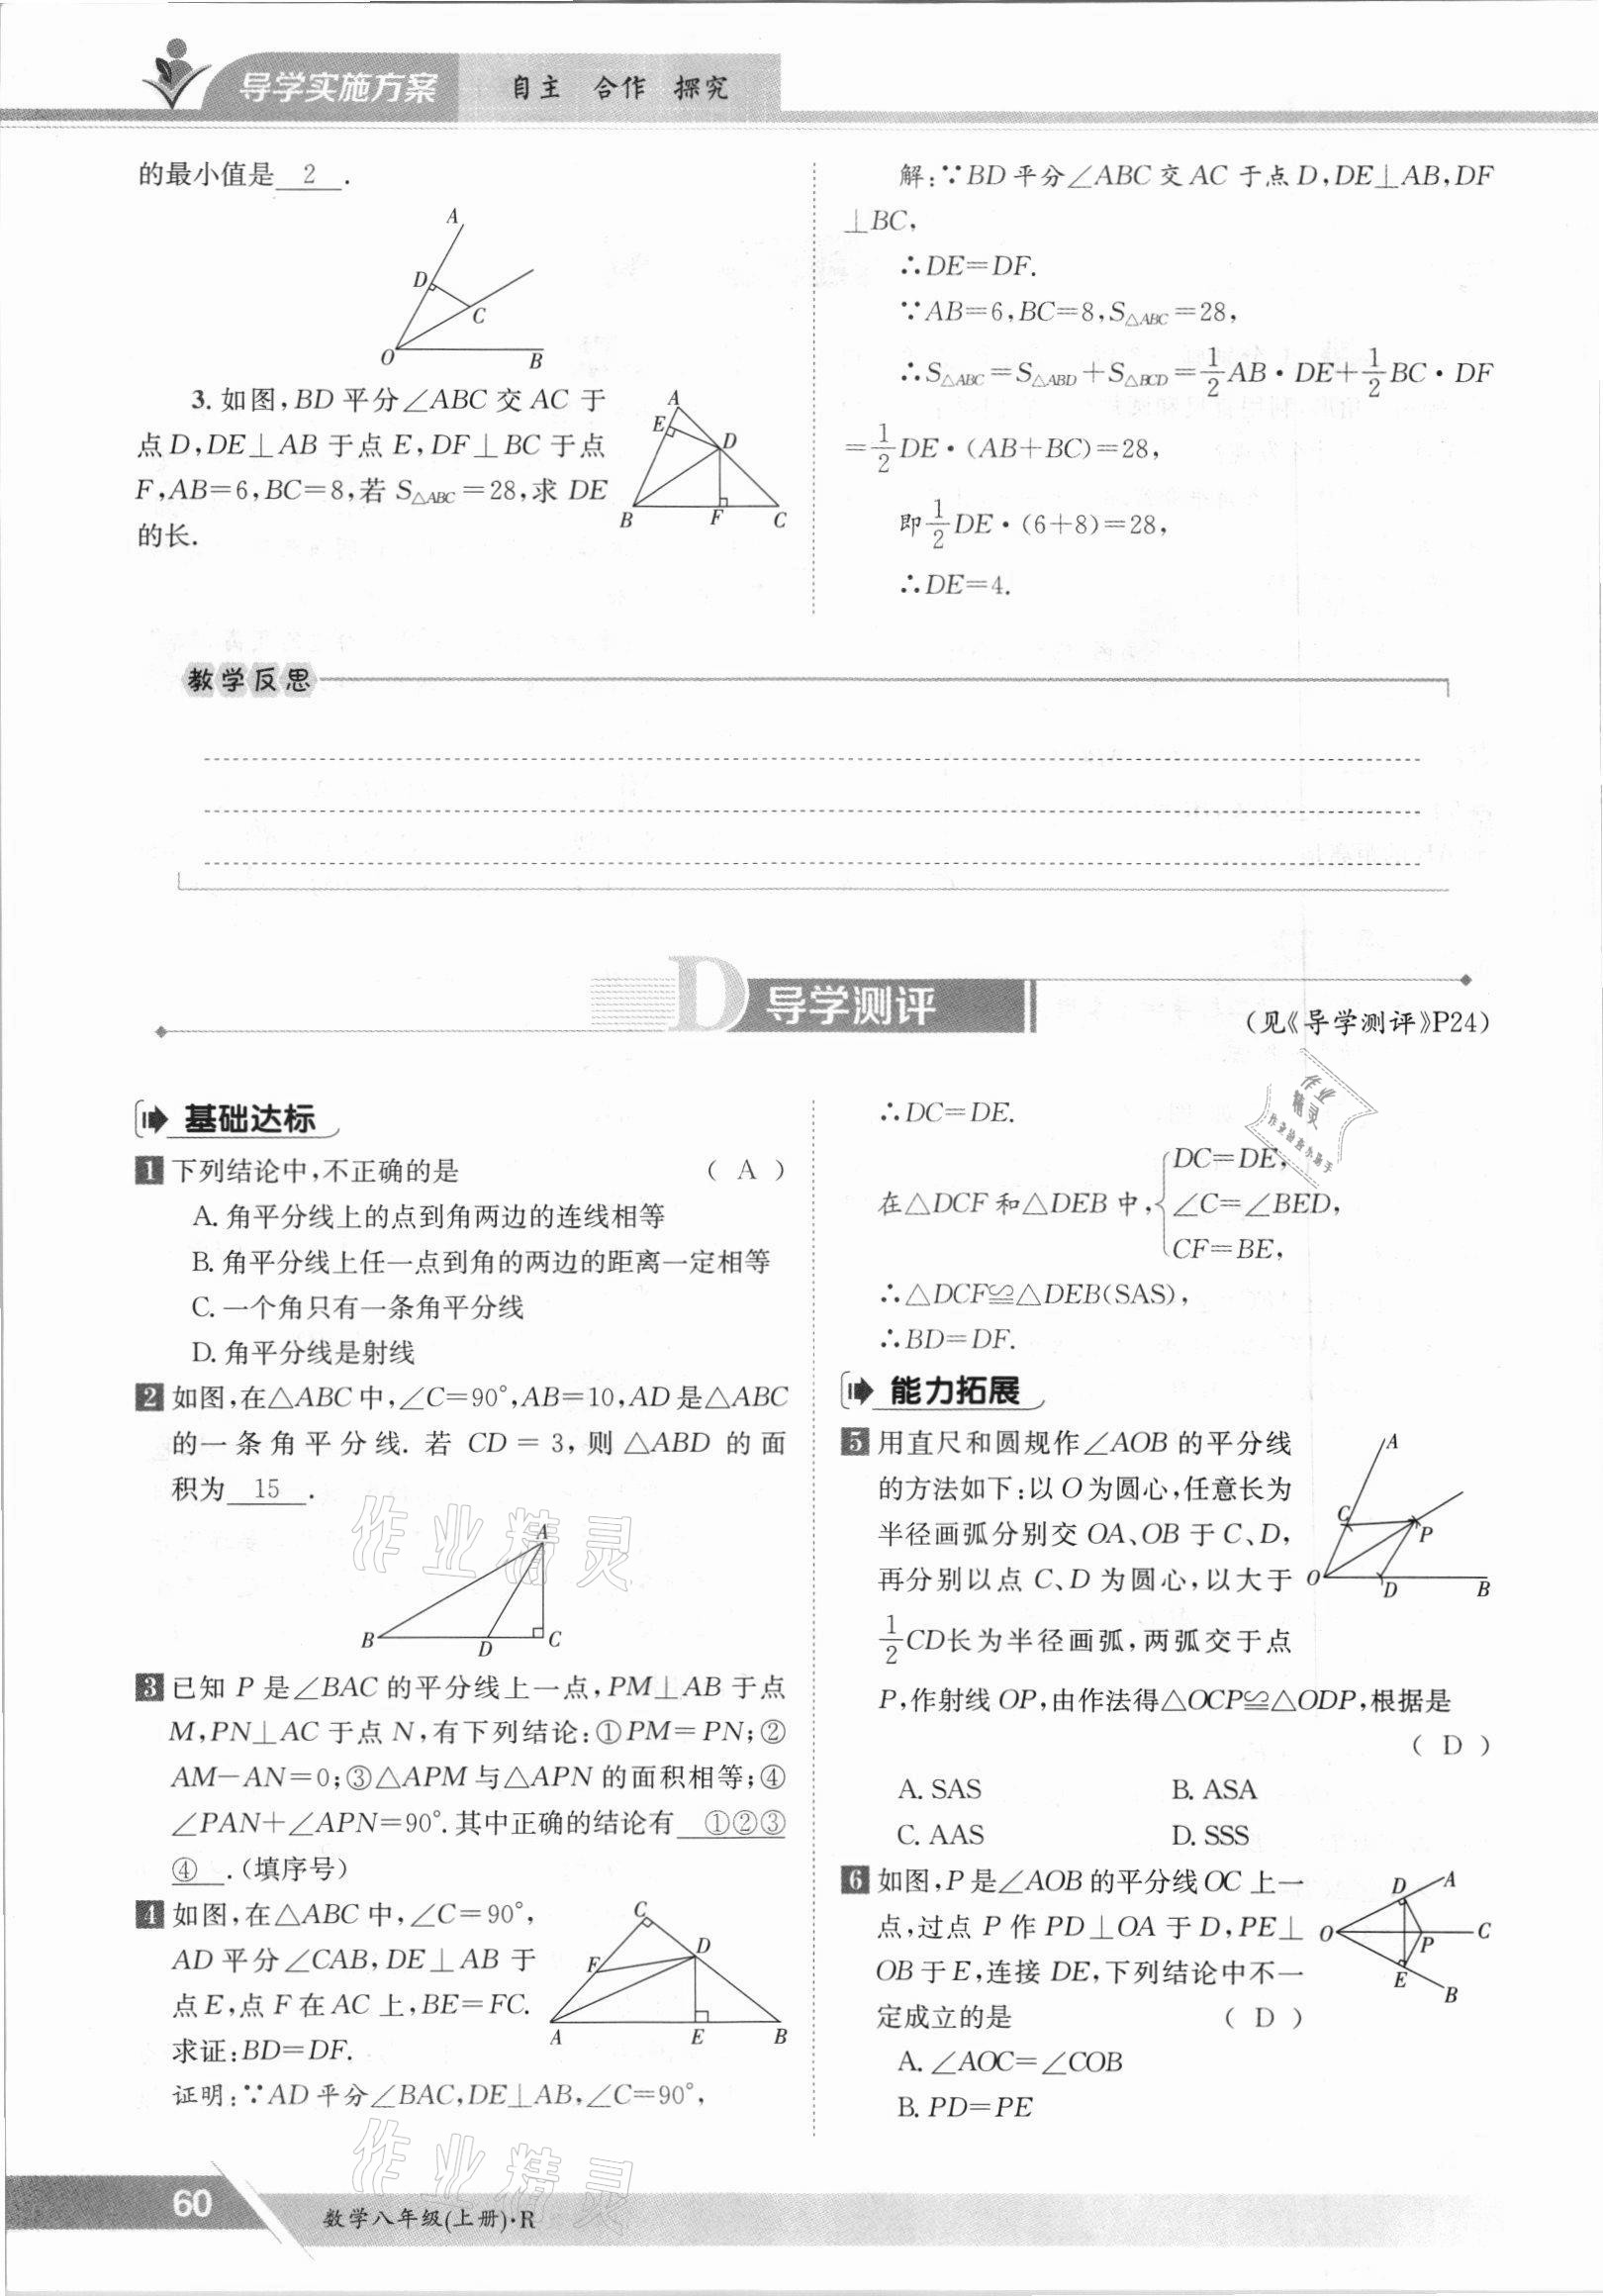 导学实施方案 自主 合作 探究
的最小值是 2 .
A
D
C
O
B
3. 如图,BD 平分∠ABC 交 AC 于
点 D,DE⊥AB 于点 E,DF⊥BC 于点
F,AB=6,BC=8,若 S△ABC=28,求 DE
的长.
A
E
D
B
F
C
解:∵BD 平分∠ABC 交 AC 于点 D,DE⊥AB,DF
⊥BC,
∴DE=DF.
∵AB=6,BC=8,S△ABC=28,
∴S△ABC=S△ABD+S△BCD=1/2AB·DE+1/2BC·DF
=1/2DE·(AB+BC)=28,
即1/2DE·(6+8)=28,
∴DE=4.
教学反思
D 导学测评
(见《导学测评》P24)
基础达标
1 下列结论中,不正确的是 ( A )
A. 角平分线上的点到角两边的连线相等
B. 角平分线上任一点到角的两边的距离一定相等
C. 一个角只有一条角平分线
D. 角平分线是射线
2 如图,在△ABC 中,∠C=90°,AB=10,AD 是△ABC
的一条角平分线. 若 CD=3,则△ABD 的面
积为 15 .
A
B
D
C
3 已知 P 是∠BAC 的平分线上一点,PM⊥AB 于点
M,PN⊥AC 于点 N,有下列结论:①PM=PN;②
AM-AN=0;③△APM 与△APN 的面积相等;④
∠PAN+∠APN=90°.其中正确的结论有 ①②③
④ .(填序号)
4 如图,在△ABC 中,∠C=90°,
AD 平分∠CAB,DE⊥AB 于
点 E,点 F 在 AC 上,BE=FC.
求证:BD=DF.
C
D
F
A
E
B
证明:∵AD 平分∠BAC,DE⊥AB,∠C=90°,
∴DC=DE.
在△DCF 和△DEB 中,
DC=DE,
∠C=∠BED,
CF=BE,
∴△DCF≌△DEB(SAS),
∴BD=DF.
能力拓展
5 用直尺和圆规作∠AOB 的平分线
的方法如下:以 O 为圆心,任意长为
半径画弧分别交 OA、OB 于 C、D,
再分别以点 C、D 为圆心,以大于
1/2CD长为半径画弧,两弧交于点
P,作射线 OP,由作法得△OCP≌△ODP,根据是
( D )
A
C
P
O
D
B
A. SAS B. ASA
C. AAS D. SSS
6 如图,P 是∠AOB 的平分线 OC 上一
点,过点 P 作 PD⊥OA 于 D,PE⊥
OB 于 E,连接 DE,下列结论中不一
定成立的是 ( D )
D
A
O
P
C
E
B
A. ∠AOC=∠COB
B. PD=PE
作业精灵
作业精灵
作业精灵
60
数学八年级(上册)·R